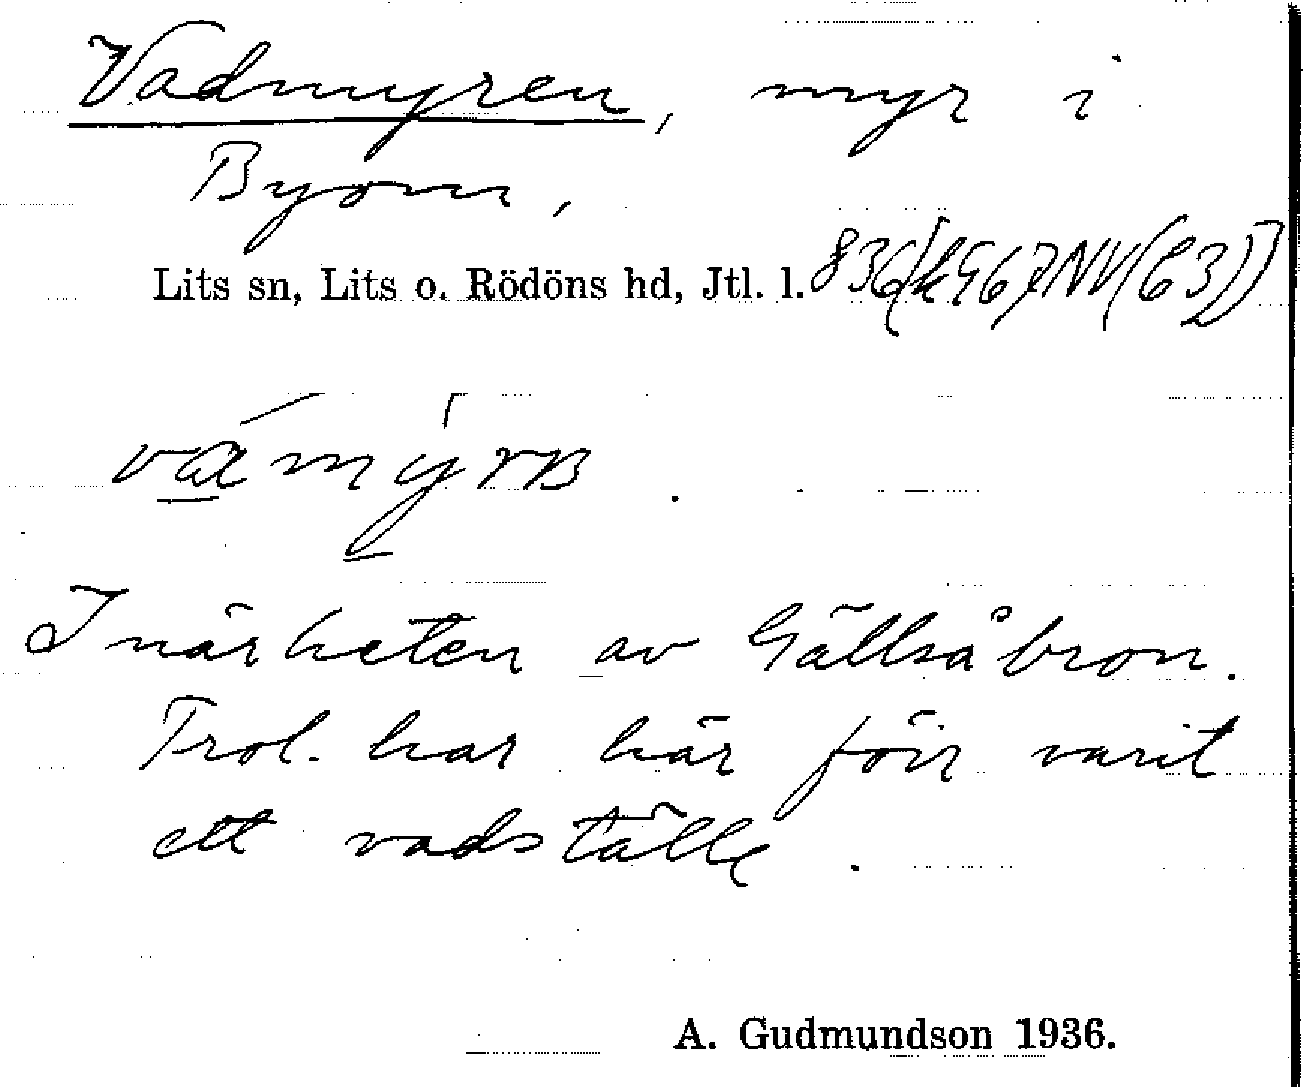 Vadmyren, myr i
Byom,
Lits sn, Lits o. Rödöns hd, Jtl. l.
I närheten av Gällsåbron.
Trol. har här förr varit
ett vadställe.
A. Gudmundson 1936.